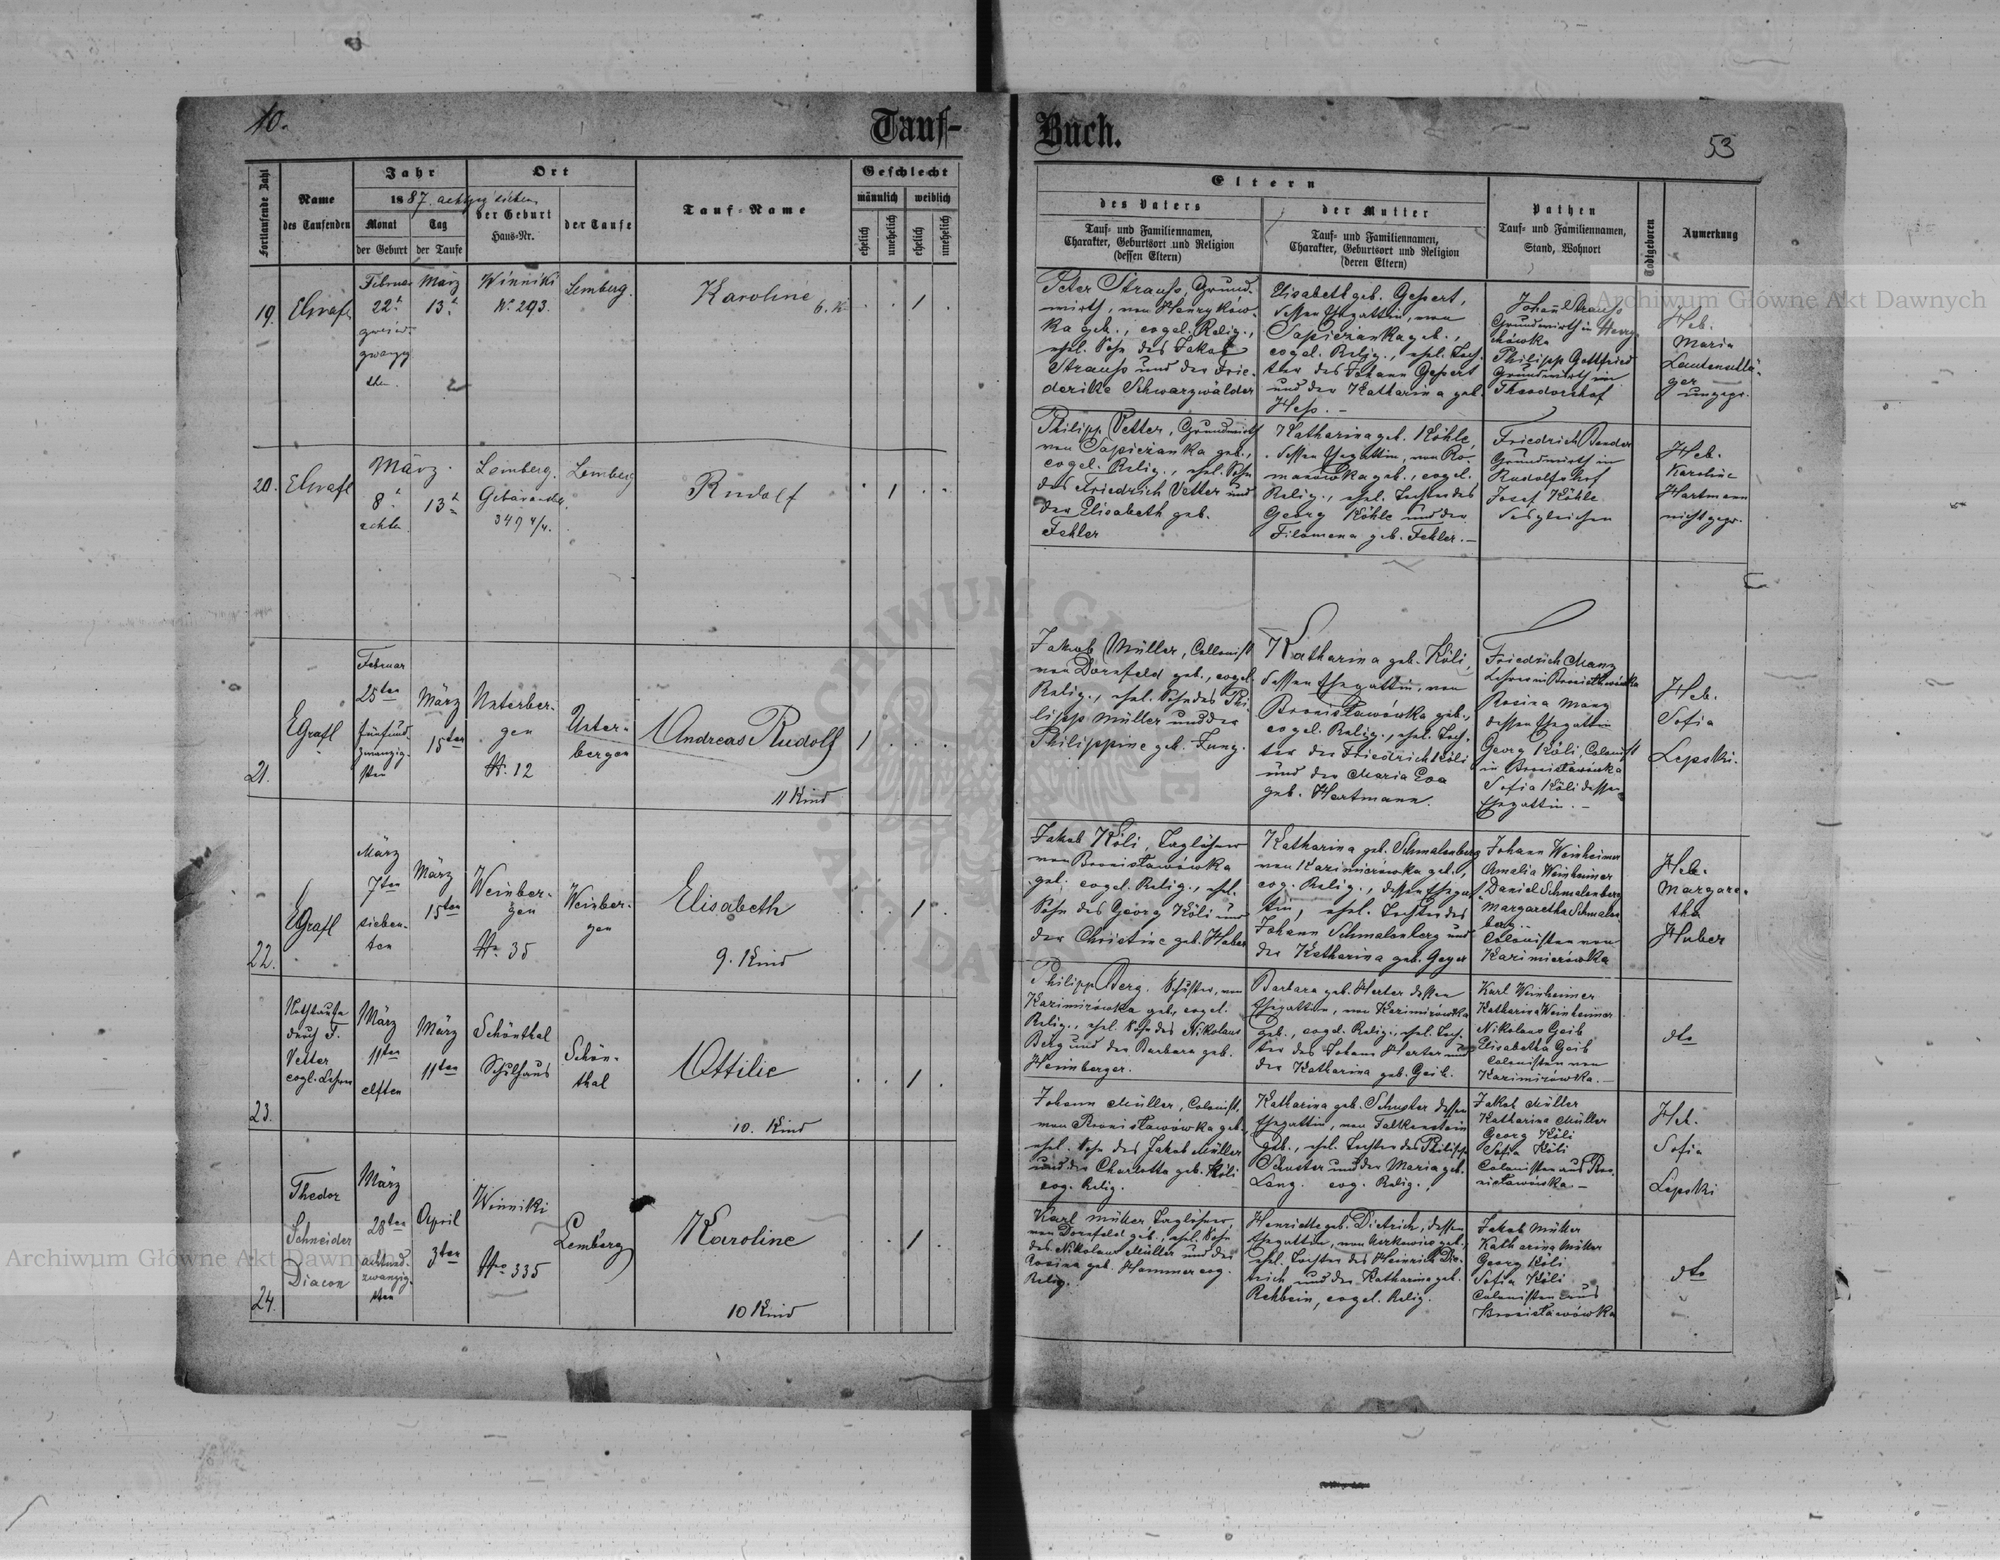 10.
Tauf-
Buch.
53
Fortlaufende Zahl
Name
des Taufenden
Jahr
1887. achtzig sieben
Monat
der Geburt
Tag
der Taufe
Ort
der Geburt
Haus-Nr.
der Taufe
Tauf-Name
Geschlecht
männlich
weiblich
ehelich
unehelich
ehelich
unehelich
Eltern
des Vaters
Tauf- und Familiennamen,
Charakter, Geburtsort und Religion
(dessen Eltern)
der Mutter
Tauf- und Familiennamen,
Charakter, Geburtsort und Religion
(deren Eltern)
Pathen
Tauf- und Familiennamen,
Stand, Wohnort
Todtgeboren
Anmerkung
19.
Februar
22t
März
13t
Winniki
Nr. 293.
Lemberg.
Karoline
6. K.
1
Peter Strauss, Grund-
wirth, von Henryków-
ka geb., evgel. Relig.,
ehel. Sohn des Jakob
Strauss und der Frie-
derike Schwarzwälder
Elisabeth geb. Gepert,
dessen Ehegattin, von
Sapiezanka geb.,
evgel. Relig., ehel. Toch-
ter des Johann Gepert
und der Katharina geb.
Hess. -
Johan Strauss
Grundwirth in Henry-
kówka
Philipp Gottfried
Grundwirth in
Theodorshof
Heb.
Maria
Lautenschlä-
ger
ungepr.
20.
März.
8t
achte.
13t
Lemberg.
Gebäranst.
Lemberg
Rudolf
1
Philipp Vetter, Grundwirth
von Sapiezanka geb.,
evgel. Relig., ehel. Sohn
des Friedrich Vetter und
der Elisabeth geb.
Fehler
Katharina geb. Köhle,
dessen Ehegattin, von Ro-
manówka geb., evgel.
Relig., ehel. Tochter des
Georg Köhle und der
Filomena geb. Fehler. -
Friedrich Bender
Grundwirth in
Rudolfshof
Josef Köhle
desgleichen
Heb.
Karoline
Hartmann
nicht gepr.
21.
EGrafl
Februar
25ten
fünfund-
zwanzig-
sten
März
15ten
Unterber-
gen
Nr. 12
Unter-
bergen
Andreas Rudolf
11 Kind
1
Jakob Müller, Collonist
von Dornfeld geb., evgel.
Relig., ehel. Sohn des Phi-
lipp Müller und der
Philippine geb. Jung.
Katharina geb. Köli,
dessen Ehegattin, von
Bronisławówka geb.,
evgel. Relig., ehel. Toch-
ter des Friedrich Köli
und der Maria Eva
geb. Hartmann.
Friedrich Manz
Lehrer in Bronisławówka
Rosina Manz
dessen Ehegattin
Georg Köli, Colonist
in Bronisławówka
Sofia Köli dessen
Ehegattin. -
Heb.
Sofia
Lepski.
22.
EGrafl
März
7ten
sieben-
ten
März
15ten
Weinber-
gen
Nr. 35
Weinber-
gen
Elisabeth
9. Kind
1
Jakob Köli, Taglöhner
von Bronisławówka
geb. evgel. Relig., ehel.
Sohn des Georg Köli und
der Christine geb. Huber
Katharina geb. Schmalenberg
von Kazimierówka geb.,
evg. Relig., dessen Ehegat-
tin, ehel. Tochter des
Johann Schmalenberg und
der Katharina geb. Geyer
Johann Weinheimer
Amalia Weinheimer
Daniel Schmalenberg
Margaretha Schmalen-
berg..
Colonisten von
Kazimierówka
Heb.
Margare-
tha
Huber
23.
Nothtaufe
durch F.
Vetter
evgl. Lehrer
März
11ten
elften
März
11ten
Schönthal
Schulhaus
Schön-
thal
Ottilie
10. Kind
1
Philipp Berg, Schuster, von
Kazimirówka geb., evgel.
Relig., ehel. Sohn des Nikolaus
Berg und der Barbara geb.
Heimberger.
Barbara geb. Herter dessen
Ehegattin, von Kazimirówka
geb., evgel. Relig., ehel. Toch-
ter des Johann Herter und
der Katharina geb. Geib.
Karl Weinheimer
Katharina Weinheimer
Nikolaus Geib
Elisabetha Geib
Colonisten von
Kazimirówka. -
dto
Johann Müller, Colonist,
von Bronisławówka geb.
ehel. Sohn des Jakob Müller
und der Charlotta geb. Köli
evg. Relig.
Katharina geb. Schuster dessen
Ehegattin, von Falkenstein
geb., ehel. Tochter des Philipp
Schuster und der Maria geb.
Lang. evg. Relig.,
Jakob Müller
Katharina Müller
Georg Köli
Sofia Köli
Colonisten aus Bro-
nisławówka -
Heb.
Sofia
Lepski
24.
Thedor
Schneider
Diacon
März
28ten
achtund-
zwanzig-
sten
April
3ten
Winniki
Nro 335
Lemberg
Karoline
10 Kind
1
Karl Müller, Taglöhner,
von Dornfeld geb., ehel. Sohn
des Nikolaus Müller und der
Rosina geb. Hammer evg.
Relig.
Henriette geb. Dietrich, dessen
ehel. Tochter des Heinrich Die-
trich und der Katharina geb.
Rehbein, evgel. Relig.
Jakob Müller
Katharina Müller
Georg Köli
Sofia Köli
Colonisten aus
Bronisławówka
dto
Archiwum Główne Akt Dawnych
Archiwum Główne Akt Dawnych
ARCHIWUM GŁÓWNE AKT DAWNYCH